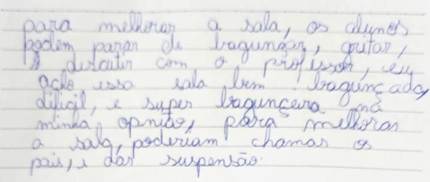 para melhorar a sala, os alunos
podem parar de bagunçar, gritar,
e discutir com o professor, eu
acho, essa sala bem bagunçada,
dificil, e super bagunceira na
minha opnião, para melhorar
a sala, poderiam chamar os
pais, e dar suspensão.